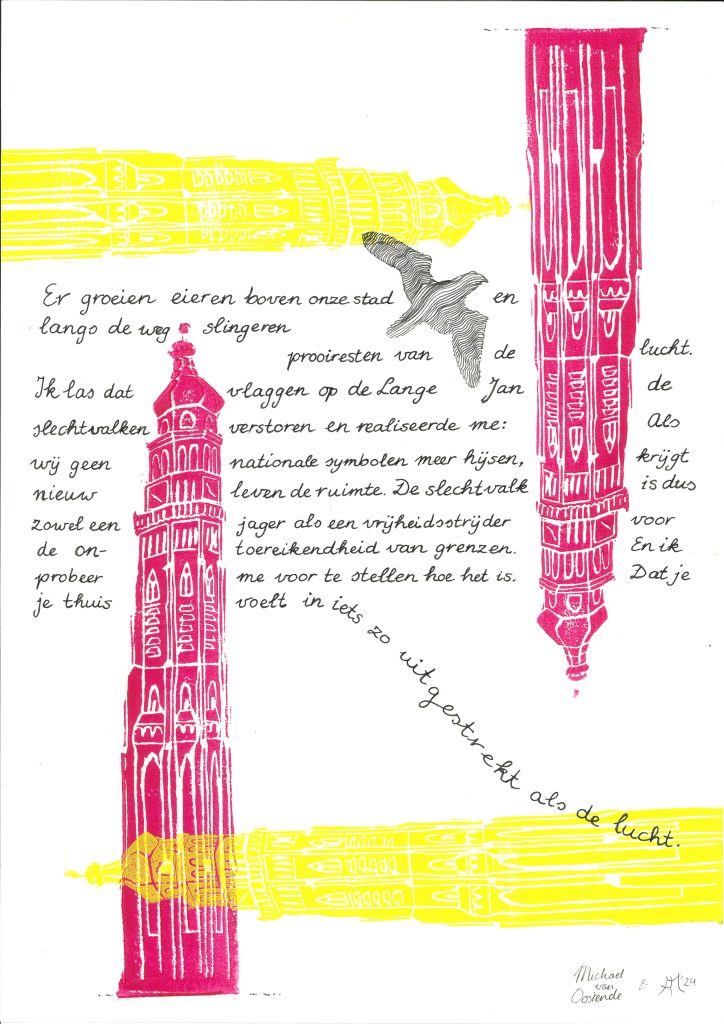 Er groeien eieren boven onze stad en
langs de weg slingeren
prooiresten van de lucht.
Ik las dat vlaggen op de Lange Jan de
slechtvalken verstoren en realiseerde me: Als
wij geen nationale symbolen meer hijsen, krijgt
nieuw leven de ruimte. De slechtvalk is dus
zowel een jager als een vrijheidsstrijder voor
de on- toereikendheid van grenzen. En ik
probeer me voor te stellen hoe het is. Dat je
je thuis voelt in iets zo uitgestrekt als de lucht.
Michael
van
Oostende
& '24